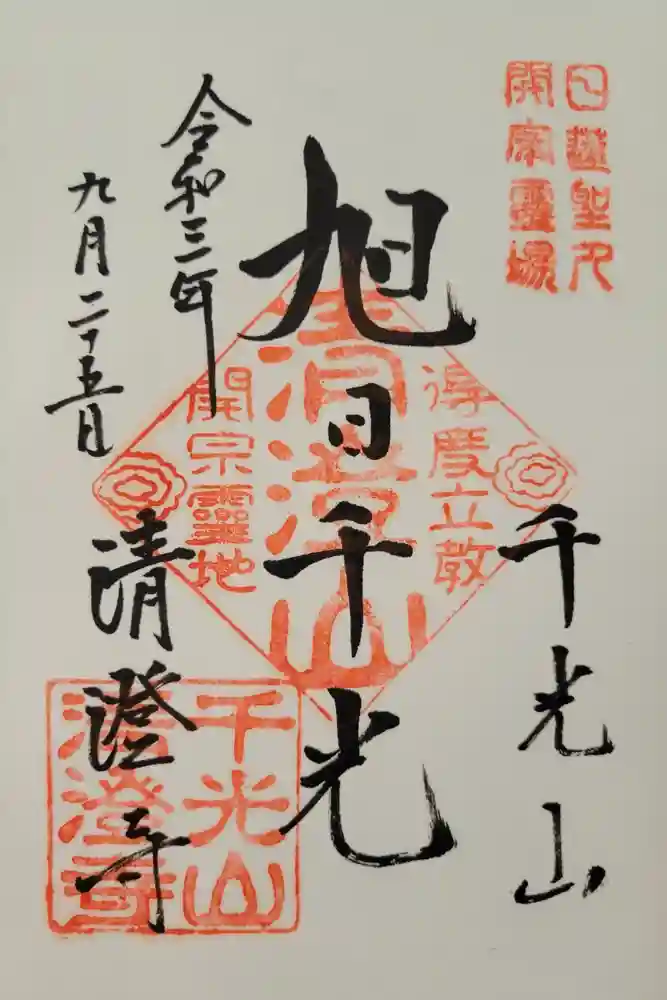 日蓮聖人
開宗靈場
千光山
得度立教
清澄山
開宗靈地
旭日千光
令和三年
九月二十五日
清澄寺
千光山
清澄寺